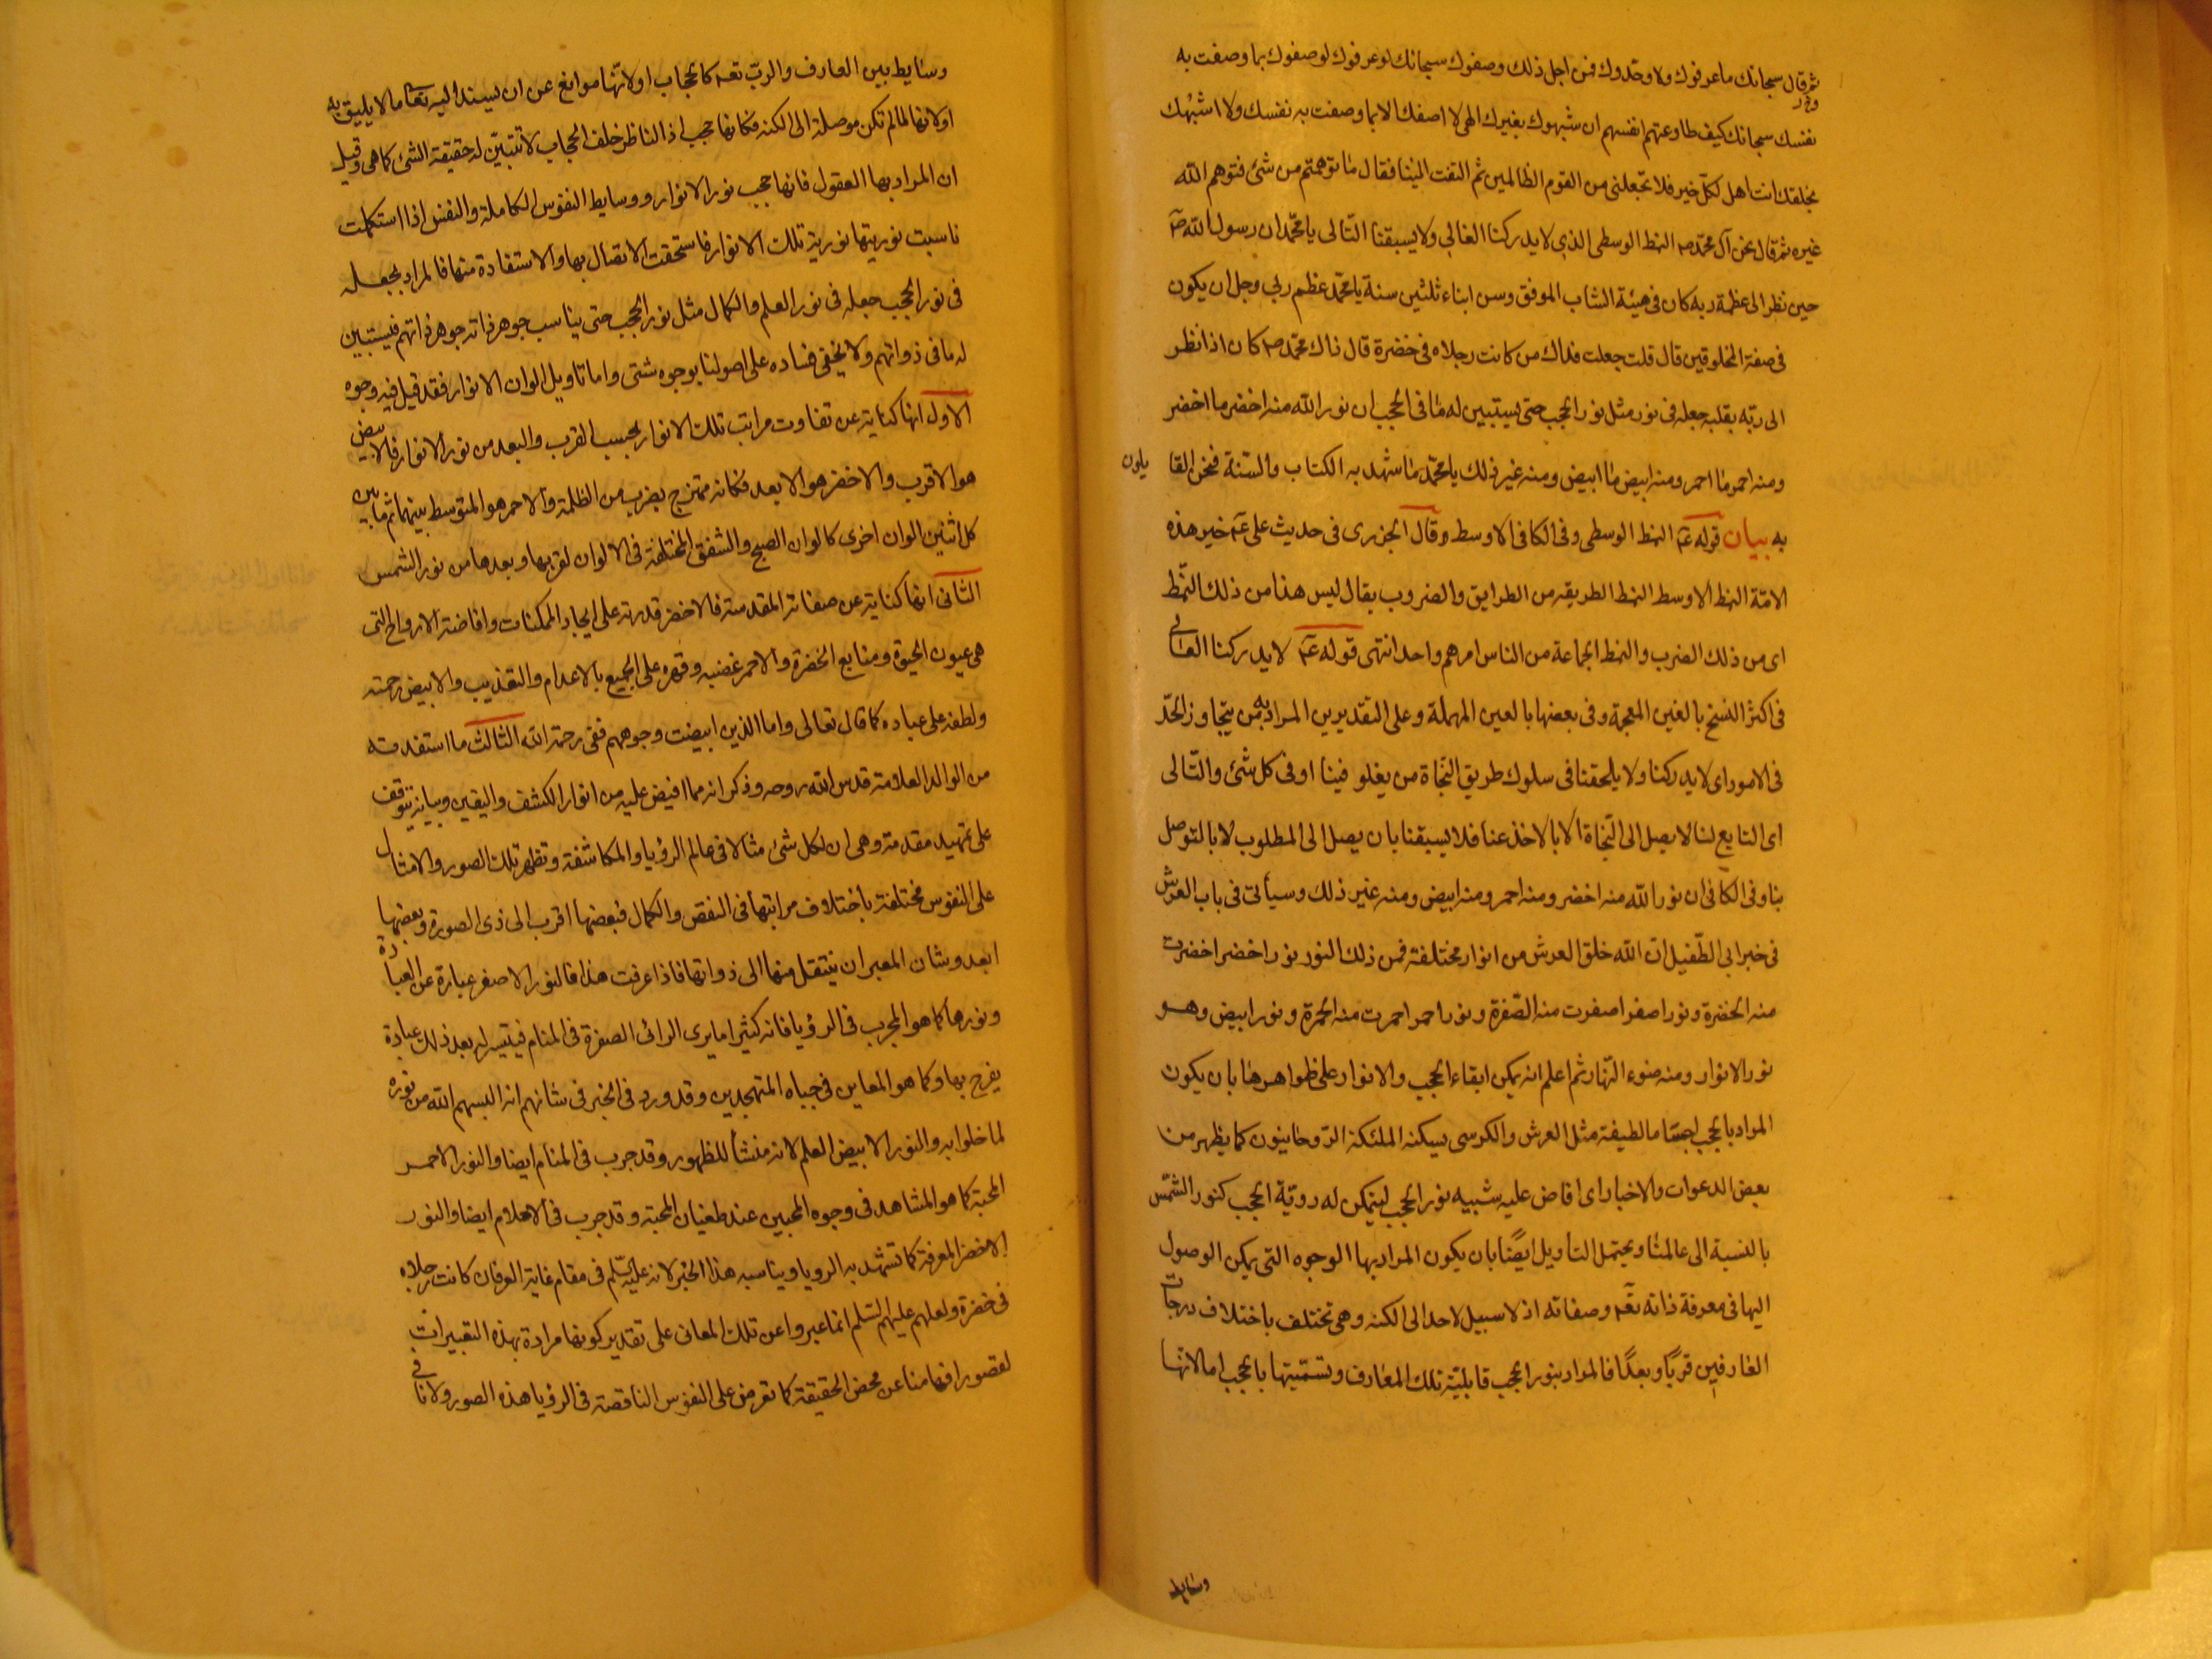 ثم قال سبحانك ما عرفوك ولا وحدوك فمن اجل ذلك وصفوك سبحانك لو عرفوك لوصفوك بما وصفت به
نفسك سبحانك كيف طاوعتهم انفسهم ان شبهوك بغيرك الهى لا اصفك الا بما وصفت به نفسك ولا اشبهك
بخلقك انت اهل لكل خير فلا تجعلنى من القوم الظالمين ثم التفت الينا فقال ما توهمتم من شئ فتوهموا الله
غيره ثم قال نحن آل محمد ص النمط الوسطى الذى لا يدركنا الغالى ولا يسبقنا التالى يا محمد ان رسول الله ص
حين نظر الى عظمة ربه كان فى هيئة الشاب الموفق وسن ابناء ثلثين سنة يا محمد عظم ربى وجل ان يكون
فى صفة المخلوقين قال قلت جعلت فداك من كانت رجلاه فى خضرة قال ذاك محمد ص كان اذا نظر
الى ربه بقلبه جعله فى نور مثل نور الحجب حتى يستبين له ما فى الحجب ان نور الله منه اخضر ما اخضر
ومنه احمر ما احمر ومنه ابيض ما ابيض ومنه غير ذلك يا محمد ما شهد به الكتاب والسنة فنحن القا يلون
به بيان قوله ع النمط الوسطى وفى الكافى الاوسط وقال الجزرى فى حديث على ع خير هذه
الامة النمط الاوسط النمط الطريقه من الطرايق والضروب يقال ليس هذا من ذلك النمط
اى من ذلك الضرب والنمط الجماعة من الناس امرهم واحد انتهى قوله ع لا يدركنا الغالى
فى اكثر النسخ بالغين المعجمة وفى بعضها بالعين المهملة وعلى التقديرين المراد به من يتجاوز الحد
فى الامور اى لا يدركنا ولا يلحقنا فى سلوك طريق النجاة من يغلو فينا او فى كل شئ والتالى
اى التابع لنا لا يصل الى النجاة الا بالاخذ عنا فلا يسبقنا بان يصل الى المطلوب لا بالتوصل
بنا وفى الكافى ان نور الله منه اخضر ومنه احمر ومنه ابيض ومنه غير ذلك وسيأتى فى باب العرش
فى خبر ابى الطفيل ان الله خلق العرش من انوار مختلفة فمن ذلك النور نور اخضر اخضرت
منه الخضرة ونور اصفر اصفرت منه الصفرة ونور احمر احمرت منه الحمرة ونور ابيض وهو
نور الانوار ومنه ضوء النهار ثم اعلم انه يمكن ابقاء الحجب والانوار على ظواهرها بان يكون
المراد بالحجب اجساما لطيفة مثل العرش والكرسى يسكنه الملئكة الروحانيون كما يظهر من
بعض الدعوات والاخبار اى افاض عليه شبيه نور الحجب ليمكن له روية الحجب كنور الشمس
بالنسبة الى عالمنا ويحتمل التأويل ايضا بان يكون المراد بها الوجوه التى يمكن الوصول
اليها فى معرفة ذاته تعه وصفاته اذ لا سبيل لاحد الى الكنه وهى تختلف باختلاف درجات
العارفين قربا وبعدا فالمراد بنور الحجب قابلية تلك المعارف وتسميتها بالحجب اما لانها
وسايط
وسايط بين العارف والرب تعه كالحجاب او لانها موانع عن ان يسند اليه تعا ما لا يليق به
او لانها لما لم تكن موصلة الى الكنه فكانها حجب اذ الناظر خلف الحجاب لا تتبين له حقيقة الشئ كما هى وقيل
ان المراد بها العقول فانها حجب نور الانوار ووسايط النفوس الكاملة والنفس اذا استكملت
ناسبت نوريتها نورية تلك الانوار فاستحقت الاتصال بها والاستفادة منها فالمراد بجعله
فى نور الحجب جعله فى نور العلم والكمال مثل نور الحجب حتى يناسب جوهر ذاته جوهر ذاتهم فيستبين
له ما فى ذواتهم ولا يخفى فساده على اصولنا بوجوه شتى واما تاويل الوان الانوار فقد قيل فيه وجوه
الاول انها كناية عن تفاوت مراتب تلك الانوار بحسب القرب والبعد من نور الانوار فالابيض
هو الاقرب والاخضر هو الابعد فكانه ممتزج بضرب من الظلمة والاحمر هو المتوسط بينهما ثم ما بين
كل اثنين الوان اخرى كالوان الصبح والشفق المختلفة فى الالوان لقربها وبعدها من نور الشمس
الثانى انها كناية عن صفاته المقدسة فالاخضر قدرته على ايجاد الممكنات وافاضة الارواح التى
هى عيون الحيوة ومنابع الخضرة والاحمر غضبه وقهره على الجميع بالاعدام والتعذيب والابيض رحمته
ولطفه على عباده كما قال تعالى واما الذين ابيضت وجوههم ففى رحمة الله الثالث ما استفدته
من الوالد العلامة قدس الله روحه وذكر انه مما افيض عليه من انوار الكشف واليقين وبيانه يتوقف
على تمهيد مقدمة وهى ان لكل شئ مثالا فى عالم الرؤيا والمكاشفة وتظهر تلك الصور والامثال
على النفوس مختلفة باختلاف مراتبها فى النقص والكمال فبعضها اقرب الى ذى الصورة وبعضها
ابعد وشان المعبر ان ينتقل منها الى ذواتها فاذا عرفت هذا فالنور الاصفر عبارة عن العبادة
ونورها كما هو المجرب فى الرؤيا فانه كثيرا ما يرى الرائى الصفرة فى المنام فيتيسر له بعد ذلك عبادة
يفرح بها وكما هو المعاين فى جباه المتهجدين وقد ورد فى الخبر فى شانهم انه البسهم الله من نوره
لما خلوا به والنور الابيض العلم لانه منشأ للظهور وقد جرب فى المنام ايضا والنور الاحمر
المحبة كما هو المشاهد فى وجوه المحبين عند طغيان المحبة وقد جرب فى الاحلام ايضا والنور
الاخضر المعرفة كما تشهد به الرويا ويناسبه هذا الخبر لانه عليه السلم فى مقام غاية العرفان كانت رجلاه
فى خضرة ولعلهم عليهم السلم انما عبروا عن تلك المعانى على تقدير كونها مرادة بهذه التعبيرات
لقصور افهامنا عن محض الحقيقة كما تعرض على النفوس الناقصة فى الرؤيا هذه الصور ولانا فى